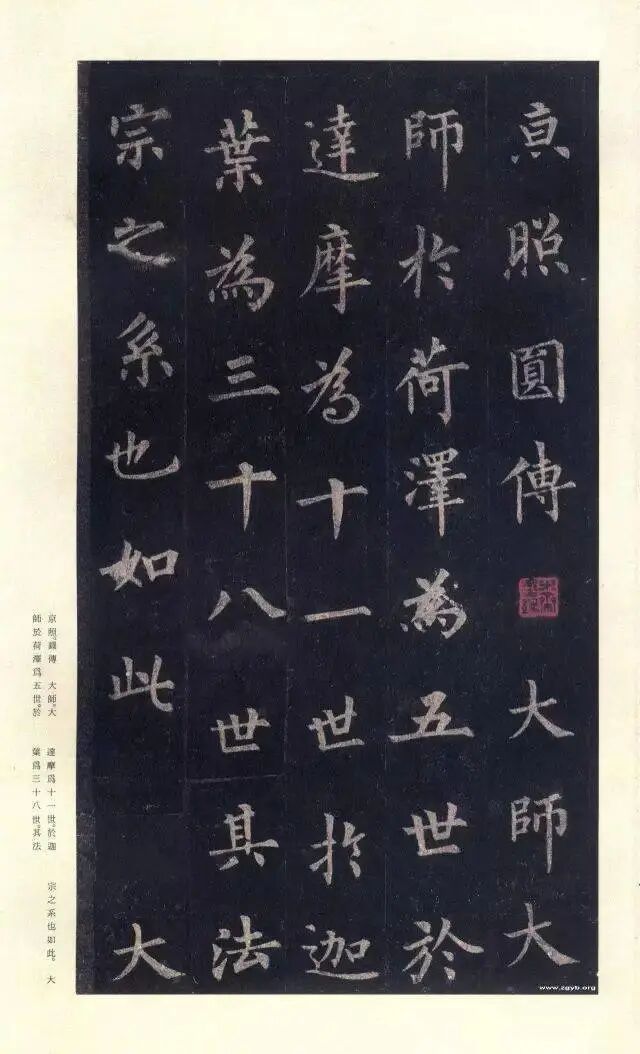 亰照圓傳 大師大
師於荷澤為五世於
達摩為十一世於迦
葉為三十八世其法
宗之系也如此 大
京照。圓傳 大師。大
師於荷澤爲五世。於
達摩爲十一世。於迦
葉爲三十八世。其法
宗之系也如此。 大
www.zgyb.org